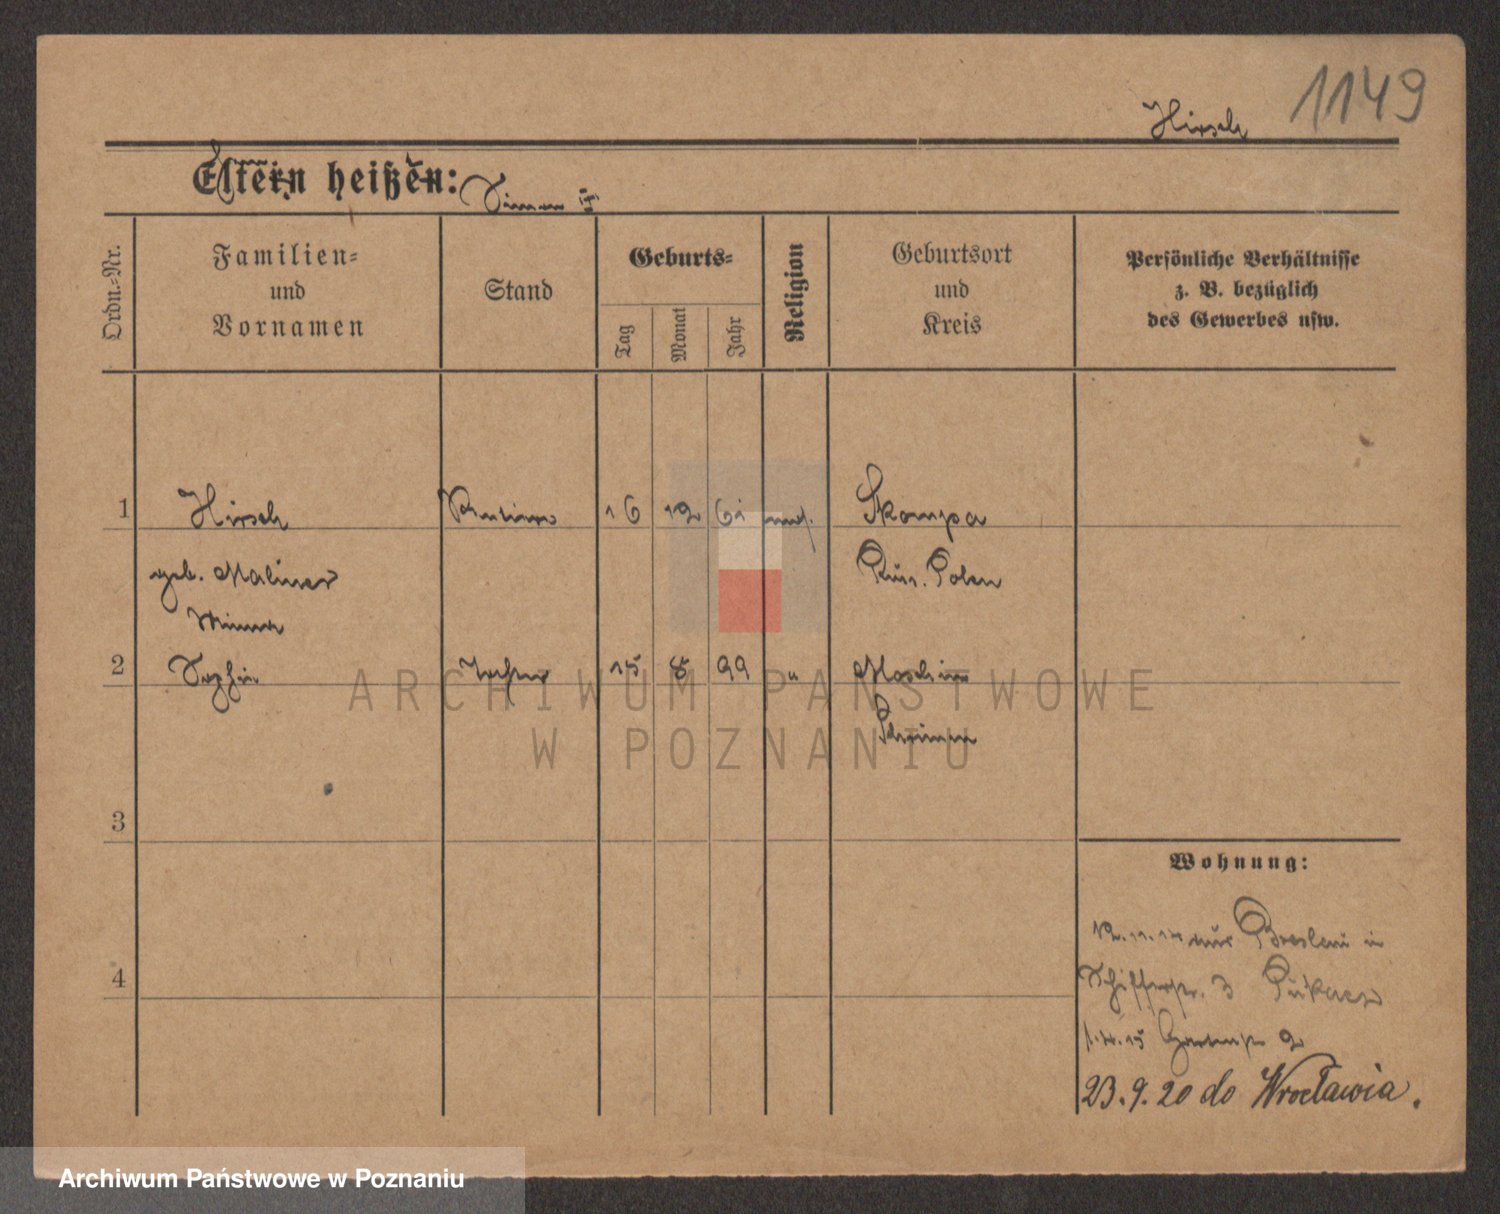 1149
Hirsch
Eltern heißen: Simon
Ordn.-Nr.
Familien-
und
Vornamen
Stand
Geburts-
Tag
Monat
Jahr
Religion
Geburtsort
und
Kreis
Persönliche Verhältnisse
z. B. bezüglich
des Gewerbes usw.
1 Hirsch 16 12 61 mos. Skompa
geb. Maliner Russ. Polen
Minna
2 Sophie Tochter 15 8 99 " Moschin
Schrimm
3
4
Wohnung:
aus Breslau in
Schifferstr. 3
Gartenstr 2
23.9.20 do Wrocławia.
ARCHIWUM PAŃSTWOWE
W POZNANIU
Archiwum Państwowe w Poznaniu